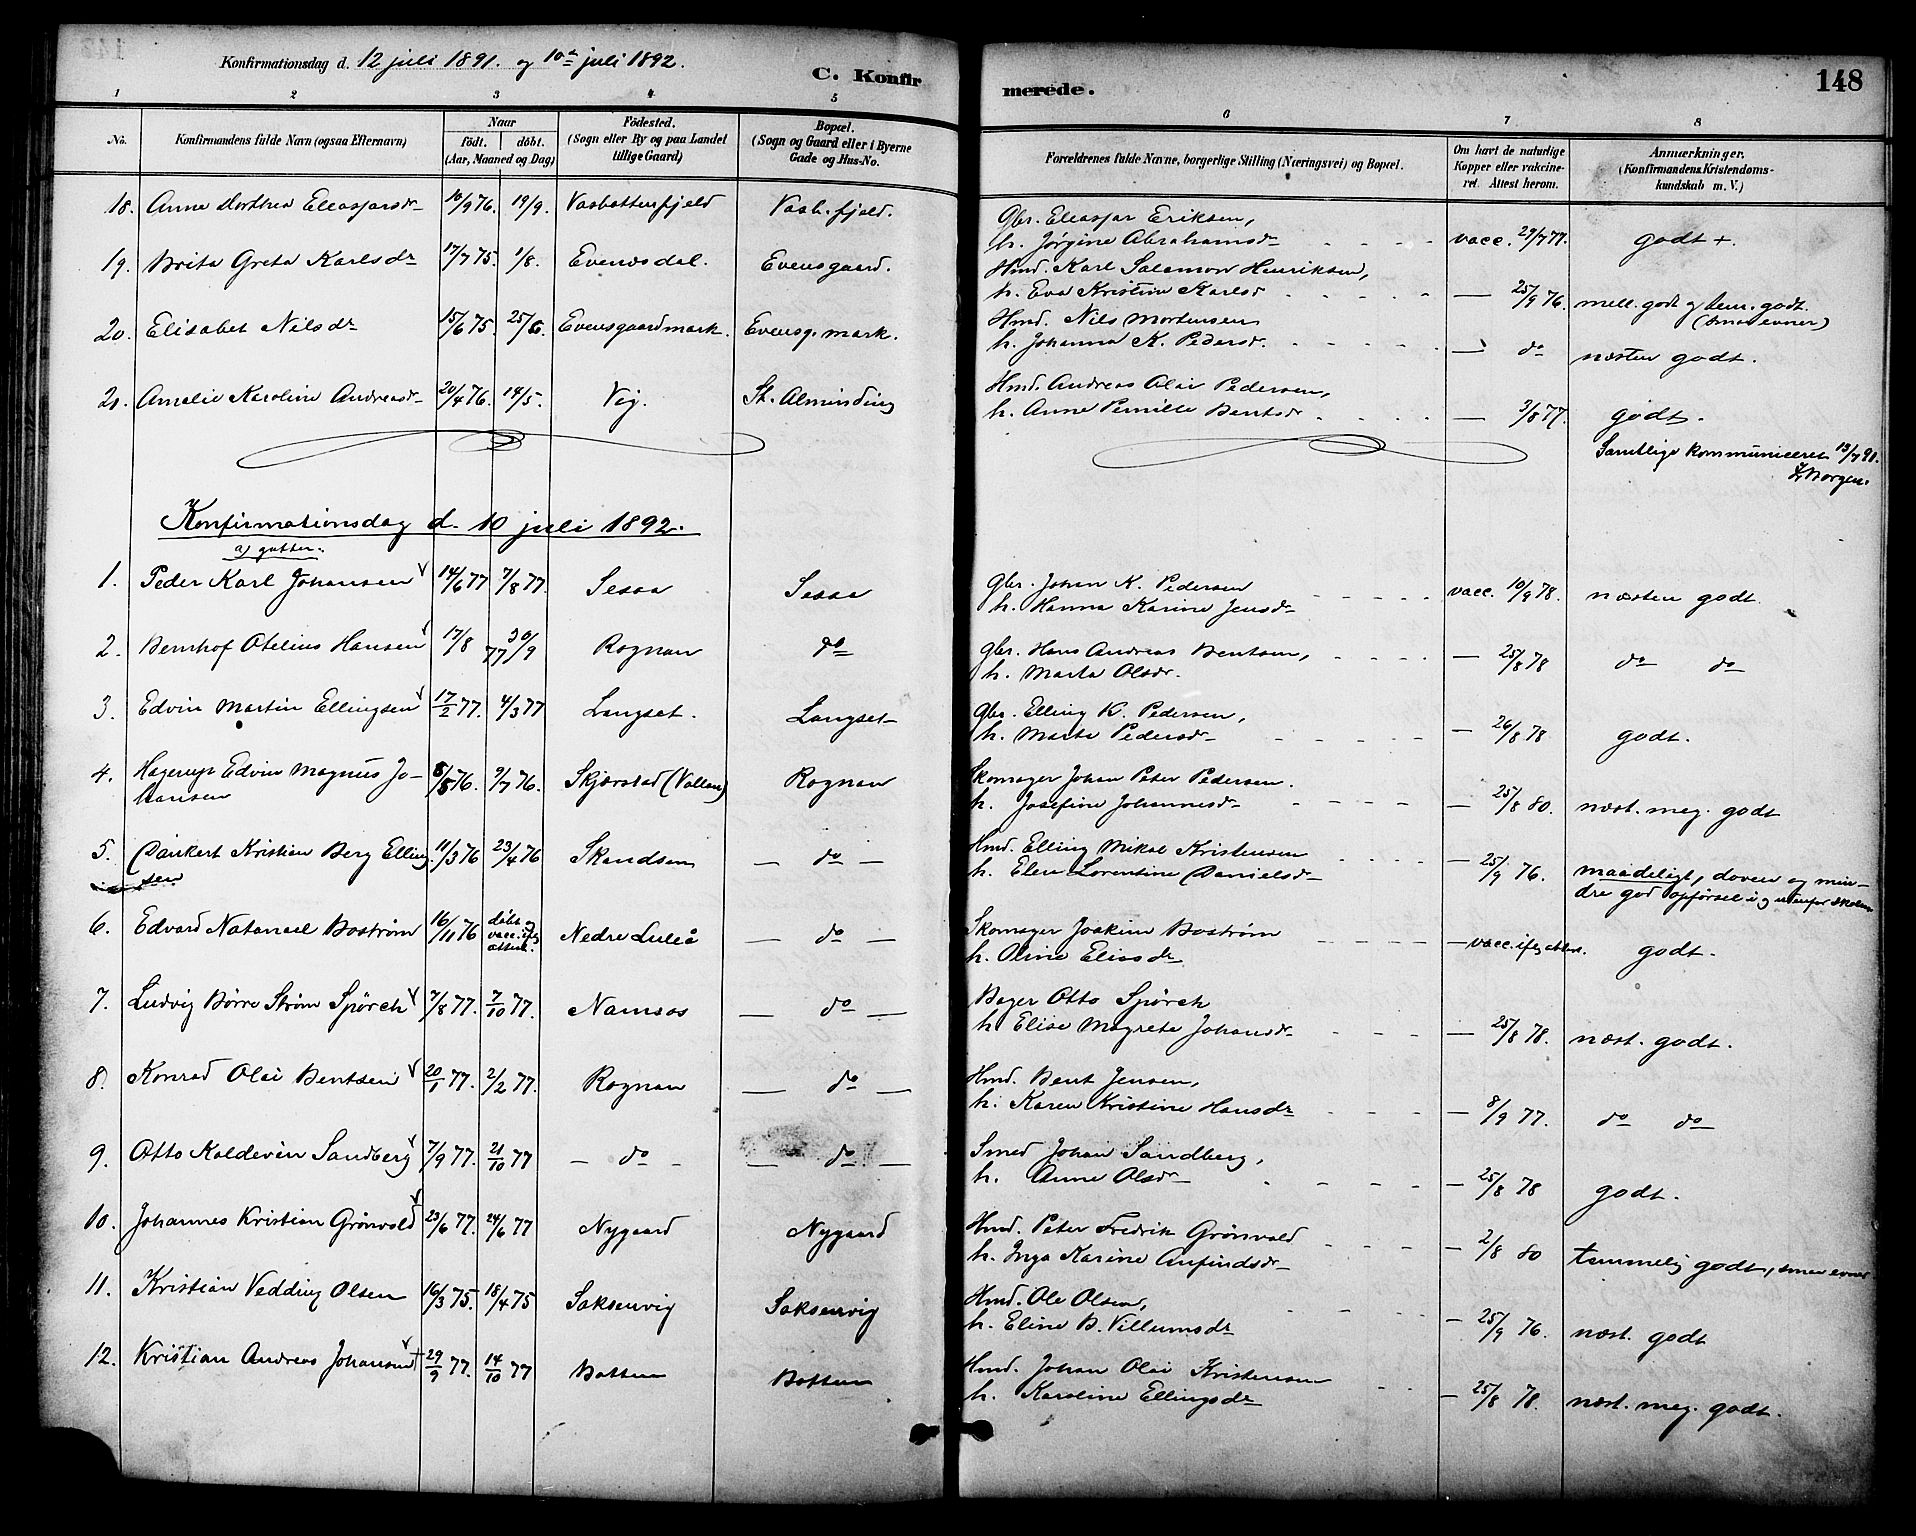 Konfirmationsdag d. 12 juli 1891. og 10de juli 1892.
C. Konfirmerede.
148
1 2 3 4 5 6 7 8
No.
Konfirmandens fulde Navn (ogsaa Efternavn)
Naar
født. døbt.
(Aar, Maaned og Dag)
Fødested.
(Sogn eller By og paa Landet
tillige Gaard)
Bopæl.
(Sogn og Gaard eller i Byerne
Gade og Hus-No.
Forældrenes fulde Navne, borgerlige Stilling (Næringsvei) og Bopæl.
Om havt de naturlige
Kopper eller vakcine-
ret. Attest herom.
Anmærkninger.
(Konfirmandens Kristendoms-
kundskab m. V.)
18. Anne Dorthea Eleasjarsdr 10/9 76. 19/9. Vasbottenfjeld Vasb. fjeld. Gbr. Eleasjar Eriksen,
h. Jørgine Abrahamsdr vacc. 29/7 77. godt +.
19. Brita Greta Karlsdr 17/7 75. 1/8. Evenesdal. Evensgaard. Hmd. Karl Salamon Henriksen,
h. Eva Kristine Karlsd — 25/9 76. mell. godt og hen. godt.
(smaa evner)
20. Elisabet Nilsdr 15/6 75. 25/6. Evensgaardmark. Evensg. mark. Hmd. Nils Mortensen
h. Johanna K. Pedersd. — do næsten godt.
21. Amalie Karoline Andreasdr 20/4 76. 14/5. Vig. St. Alminding Hmd. Andreas Olai Pedersen,
h. Anne Pernille Bentsdr — 3/8 77. godt.
Samtlige kommuniceret 19/7 91.
Konfirmationsdag d. 10 juli 1892.
a) gutter.
1. Peder Karl Johansen 14/6 77 7/8 77. Sessa Sessa gbr. Johan K. Pedersen
h. Hanna Karine Jensdr vacc. 10/9 78. næsten godt.
2. Bernhof Otelius Hansen 17/8 77 30/9 Rognan do gbr. Hans Andreas Bentsen,
h. Marta Olsdr. — 25/8 78 do do
3. Edvin Martin Ellingsen 17/2 77. 4/3 77 Langset. Langset gbr. Elling K. Pedersen,
h. Marta Pedersdr — 26/8 78 godt.
4. Hagerup Edvin Magnus Jo-
hansen 8/5 76. 9/7 76. Skjærstad (Vallan) Rognan Skomager Johan Peter Pedersen.
h. Josefine Johannesdr — 25/8 80. næst. meg. godt
5. Dankert Kristian Berg Elling
sen 11/3 76 23/4 76 Skandsen — do — Hmd. Elling Mikal Kristensen
h. Elen Lorentine Danielsdr — 25/9 76. maadeligt, doven og min-
dre god opførsel i og udenfor skolen
6. Edvard Natanael Boström 16/11 76 døbt og
vacc. iflg
attest. Nedre Luleå — do — Skomager Joakim Boström
h. Oline Eliasdr — vacc. iflg attest. godt.
7. Ludvig Børre Strøm Spörck 7/8 77. 7/10 77. Namsos — do — Bager Otto Spörck
h. Elise Magreta Johansdr — 25/8 78. næst. godt.
8. Konrad Olai Bentsen 20/1 77. 2/2 77. Rognan — do — Hmd. Bent Jensen,
h. Karen Kristine Hansdr — 8/9 77. do do
9. Otto Koldevin Sandberg 7/9 77. 21/10 77 — do — — do — Smed Johan Sandberg,
h. Anne Olsdr — 25/8 78 godt.
10. Johannes Kristian Grönvold 23/6 77. 24/6 77 Nygaard Nygaard Hmd. Peter Fredrik Grönvold
h. Inga Karine Anfindsdr — 2/8 80 temmelig godt, smaa evner
11. Kristian Vedding Olsen 16/3 75. 18/4 75 Saksenvig Saksenvig Hmd. Ole Olsen,
h. Eline B. Villumsdr — 25/9 76. næst. godt
12. Kristian Andreas Johansen 29/9 77. 14/10 77 Botten Botten Hmd. Johan Olai Kristensen
h. Karoline Ellingsdr — 25/8 78. næst. meg. godt.